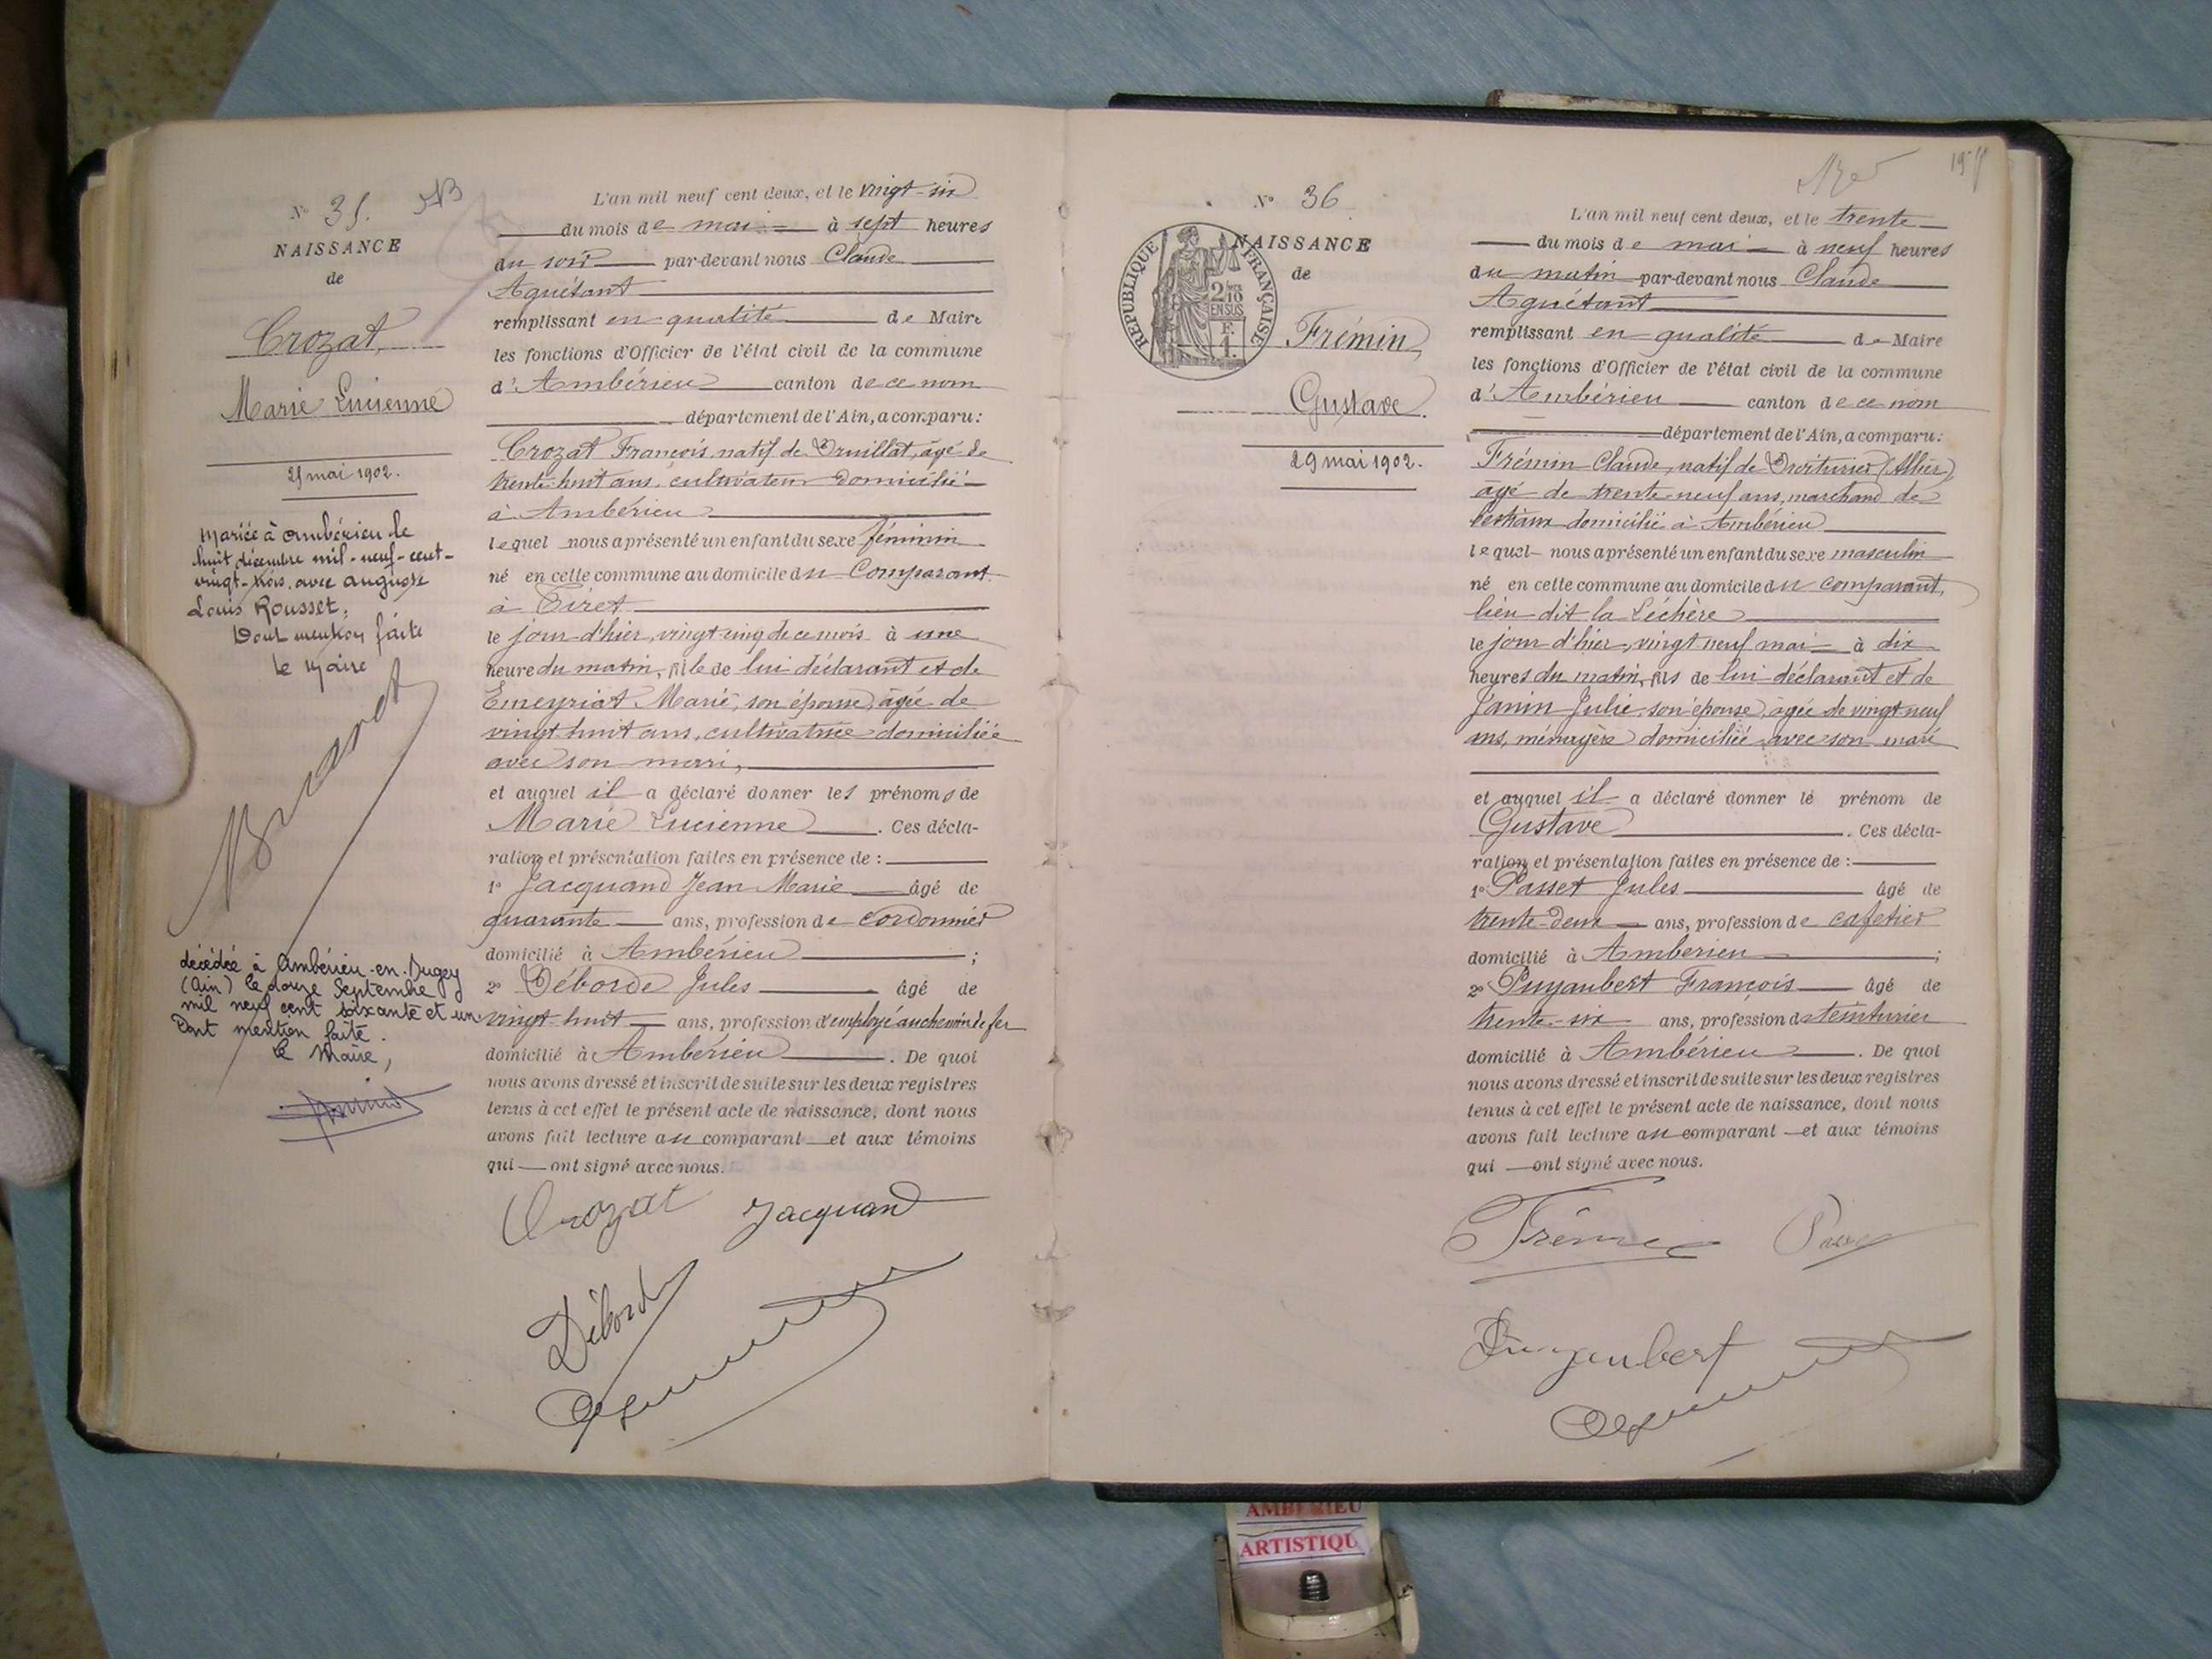 N° 35.
NAISSANCE
de
Crozat,
Marie Lucienne
25 mai 1902.
Mariée à Ambérieu le
huit décembre mil-neuf-cent-
vingt-trois avec Auguste
Louis Rousset.
Dont mention faite
Le Maire
décédée à Ambérieu-en-Bugey
(Ain) le douze Septembre
mil neuf cent soixante et un.
Dont mention faite.
Le Maire,
L'an mil neuf cent deux, et le vingt-six
du mois de mai à sept heures
du soir par-devant nous Claude
Aguétant
remplissant en qualité de Maire
les fonctions d'Officier de l'état civil de la commune
d'Ambérieu canton de ce nom
département de l'Ain, a comparu:
Crozat François, natif de Druillat, âgé de
trente-huit ans, cultivateur domicilié
à Ambérieu
lequel nous a présenté un enfant du sexe féminin
né en cette commune au domicile du Comparant
à Tiret
le jour d'hier, vingt-cinq de ce mois à une
heure du matin, fille de lui déclarant et de
Emeyriat Marie, son épouse, âgée de
vingt-huit ans, cultivatrice domiciliée
avec son mari,
et auquel il a déclaré donner les prénoms de
Marie Lucienne. Ces décla-
ration et présentation faites en présence de :
1° Jacquand Jean Marie âgé de
quarante ans, profession de cordonnier
domicilié à Ambérieu ;
2° Déborde Jules âgé de
vingt-huit ans, profession d'employé au chemin de fer
domicilié à Ambérieu. De quoi
nous avons dressé et inscrit de suite sur les deux registres
tenus à cet effet le présent acte de naissance, dont nous
avons fait lecture au comparant et aux témoins
qui ont signé avec nous.
Crozat Jacquand
Déborde
N° 36
NAISSANCE
de
RÉPUBLIQUE FRANÇAISE
2/10
EN SUS
F.
1.
Frémin,
Gustave.
29 mai 1902.
L'an mil neuf cent deux, et le trente
du mois de mai à neuf heures
du matin par-devant nous Claude
Aguétant
remplissant en qualité de Maire
les fonctions d'Officier de l'état civil de la commune
d'Ambérieu canton de ce nom
département de l'Ain, a comparu:
Frémin Claude, natif de Droiturier (Allier)
âgé de trente-neuf ans, marchand de
bestiaux domicilié à Ambérieu
lequel nous a présenté un enfant du sexe masculin
né en cette commune au domicile du comparant,
lieu dit la Léchère
le jour d'hier, vingt-neuf mai à dix
heures du matin, fils de lui déclarant et de
Janin Julie, son épouse, âgée de vingt-neuf
ans, ménagère domiciliée avec son mari
et auquel il a déclaré donner le prénom de
Gustave. Ces décla-
ration et présentation faites en présence de :
1° Passet Jules âgé de
trente-deux ans, profession de cafetier
domicilié à Ambérieu ;
2° Puyaubert François âgé de
trente-six ans, profession de teinturier
domicilié à Ambérieu. De quoi
nous avons dressé et inscrit de suite sur les deux registres
tenus à cet effet le présent acte de naissance, dont nous
avons fait lecture au comparant et aux témoins
qui ont signé avec nous.
Frémin
Puyaubert
AMBERIEU
ARTISTIQU